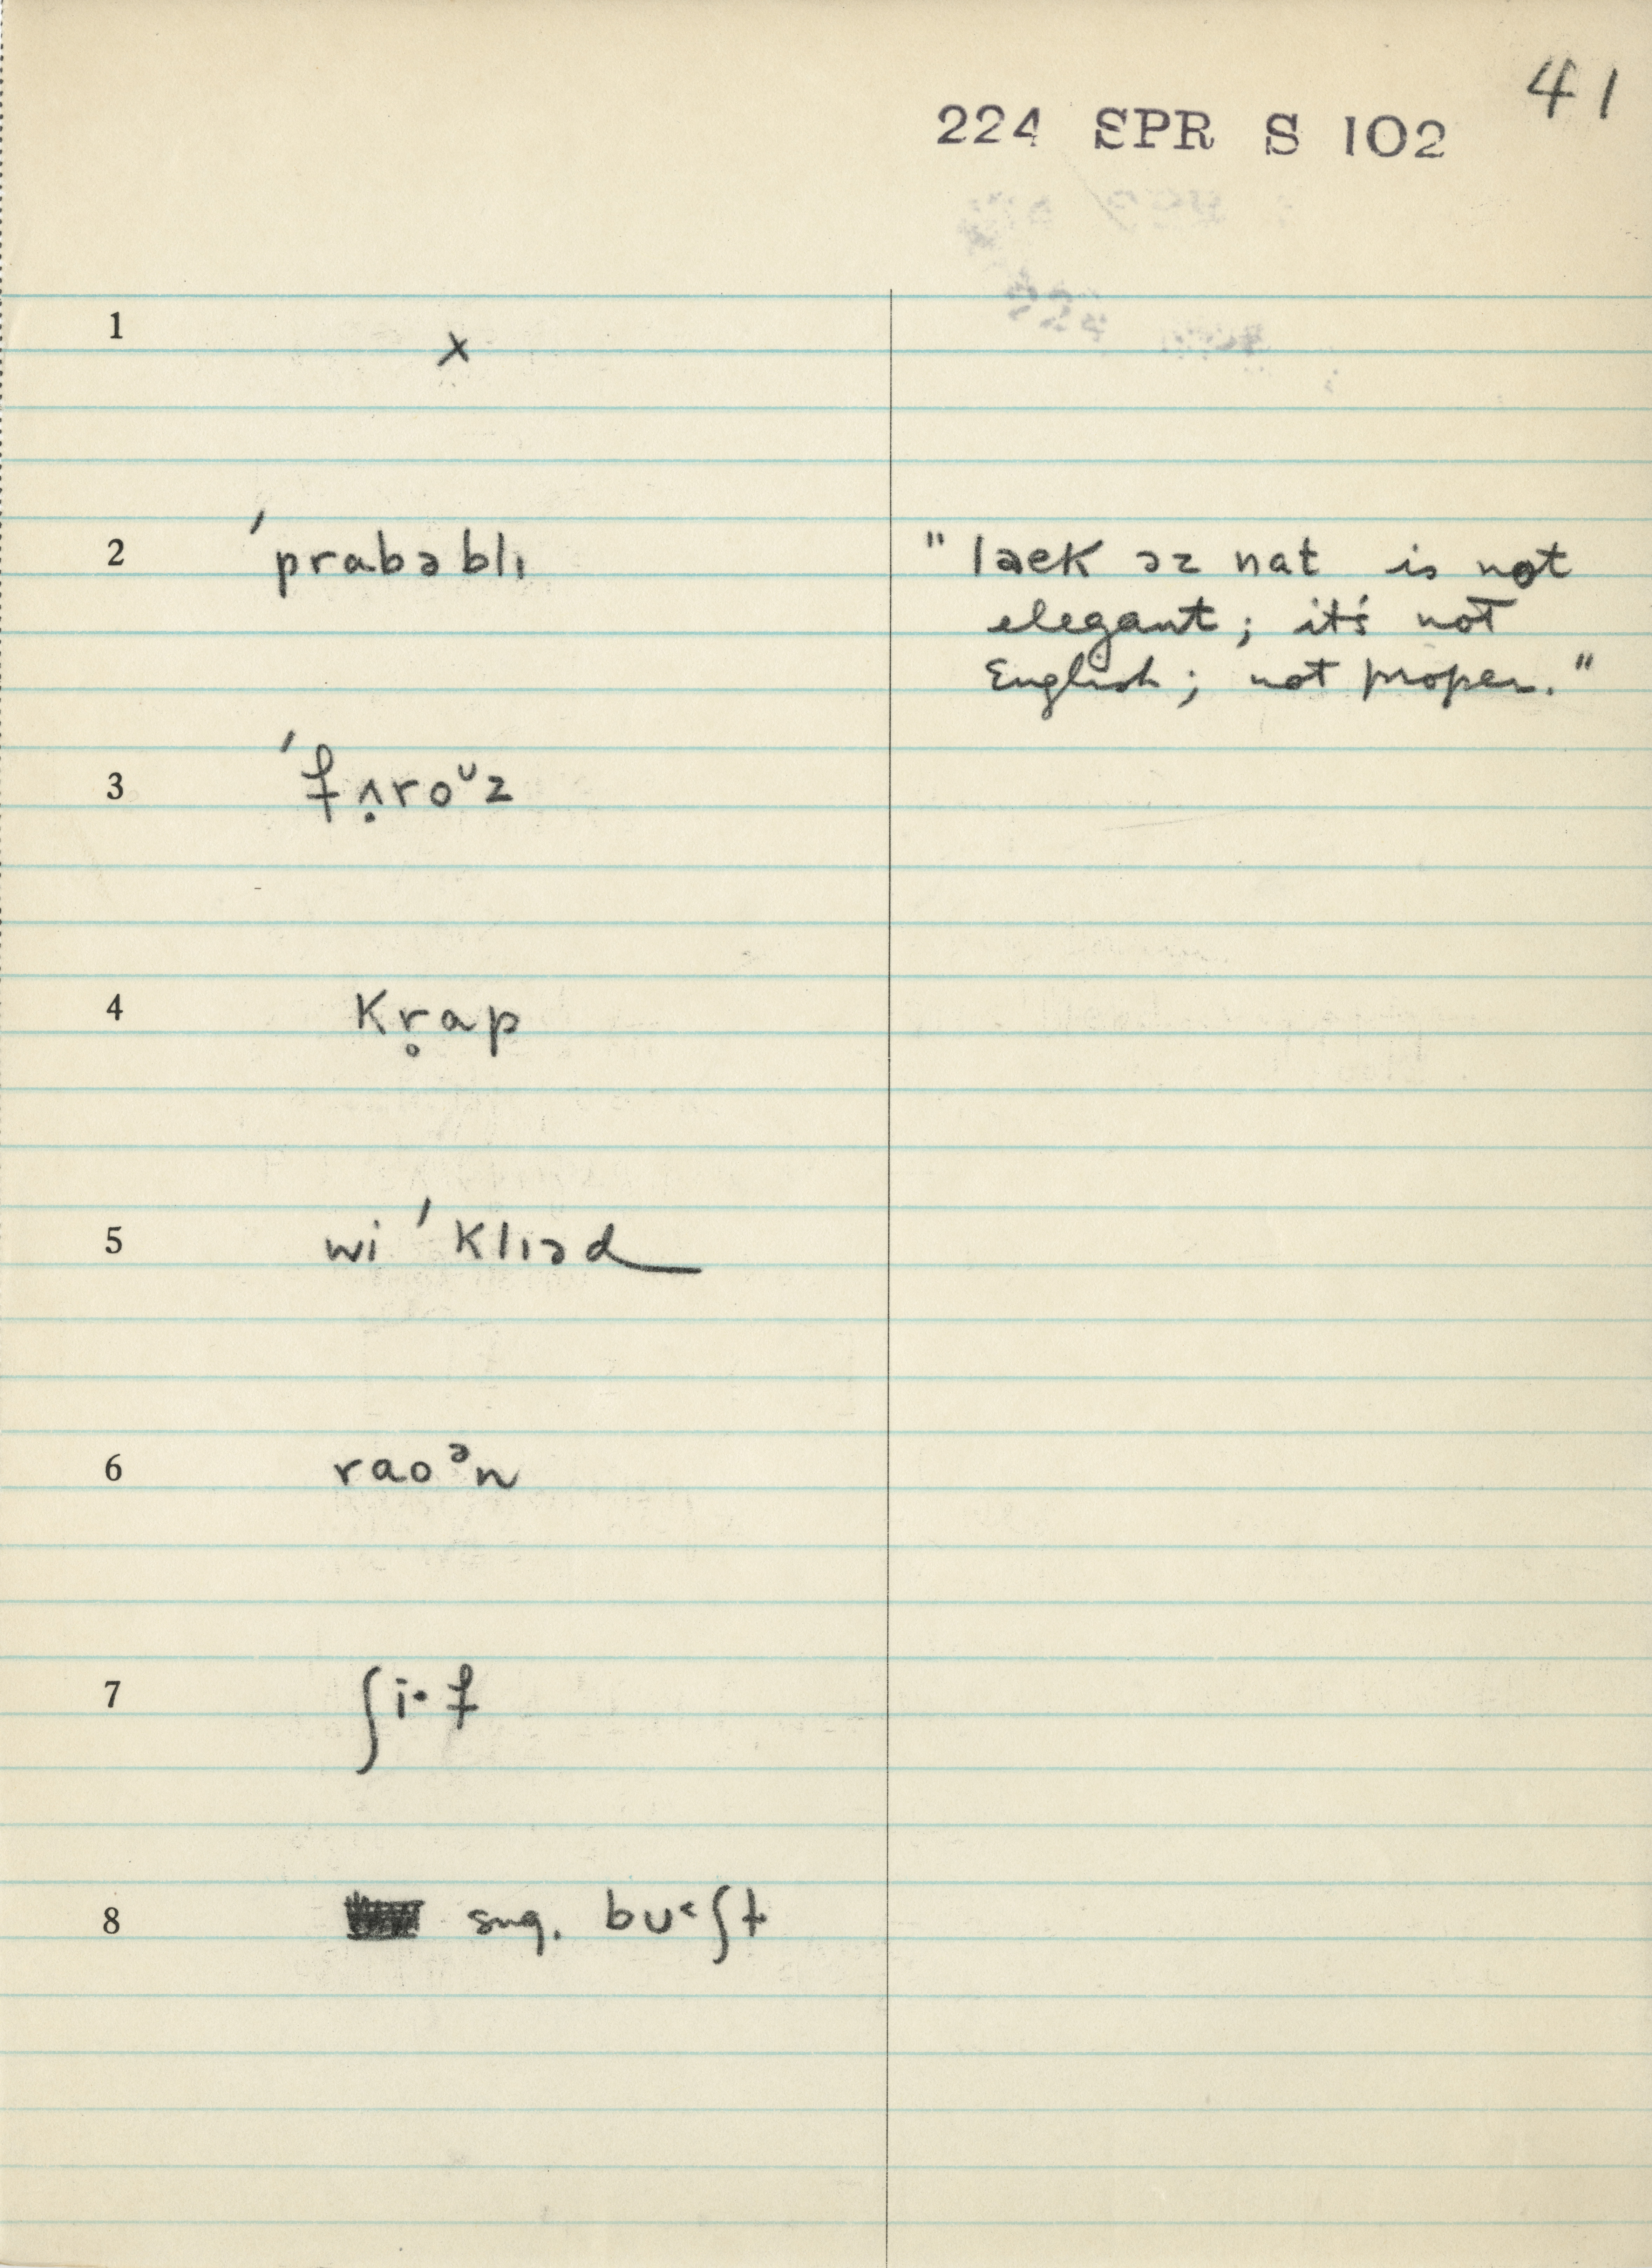 41
224 SPR S 102
1 x
2 ˈprabəblɪ "laɛk əz nat is not
elegant; it's not
English; not proper."
3 ˈfʌ̣roᴜz
4 kr̥ap
5 wi ˈklɪəd
6 raoᵊn
7 ʃi·f
8 sug. bᴜ˂ʃt